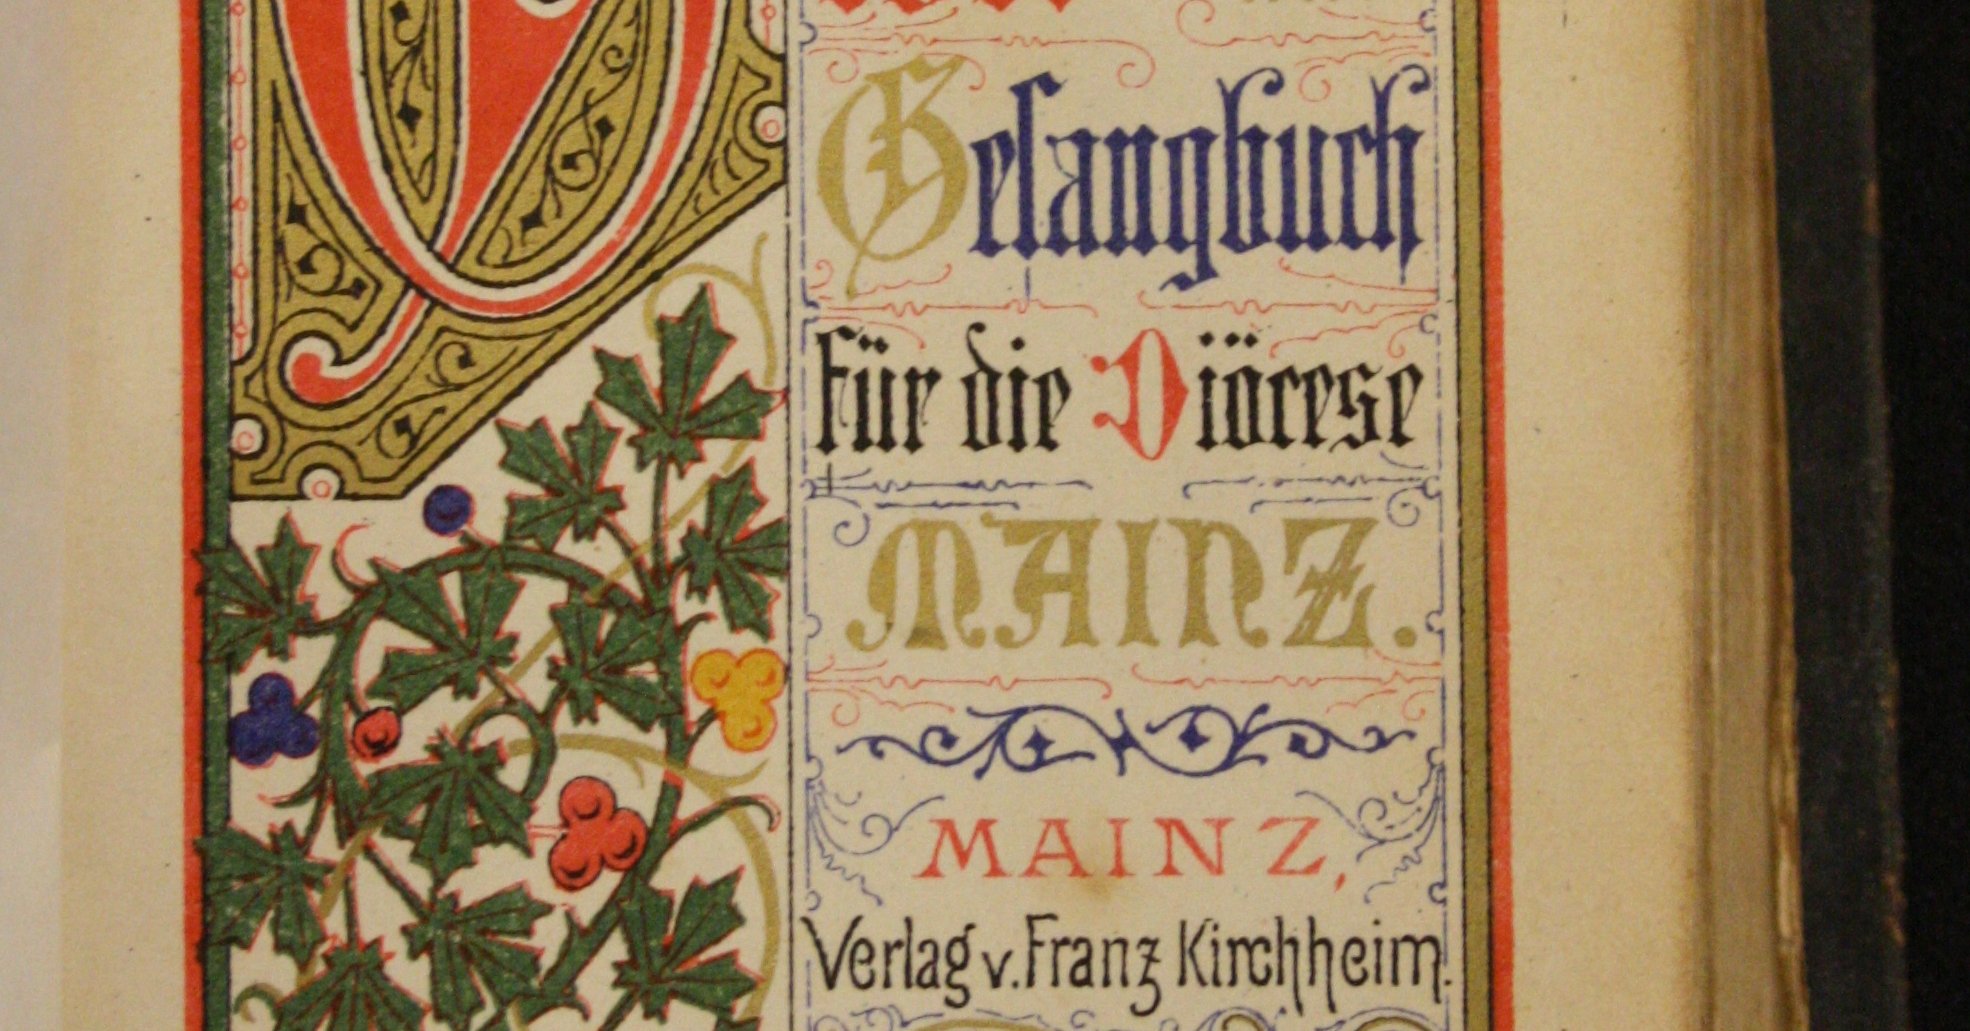 Gesangbuch
für die Diöcese
MAINZ.
MAINZ,
Verlag v. Franz Kirchheim.